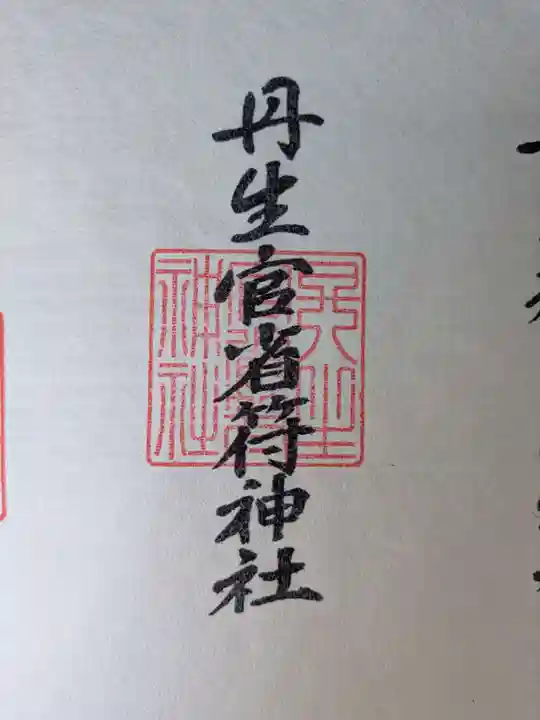 丹生官省符神社